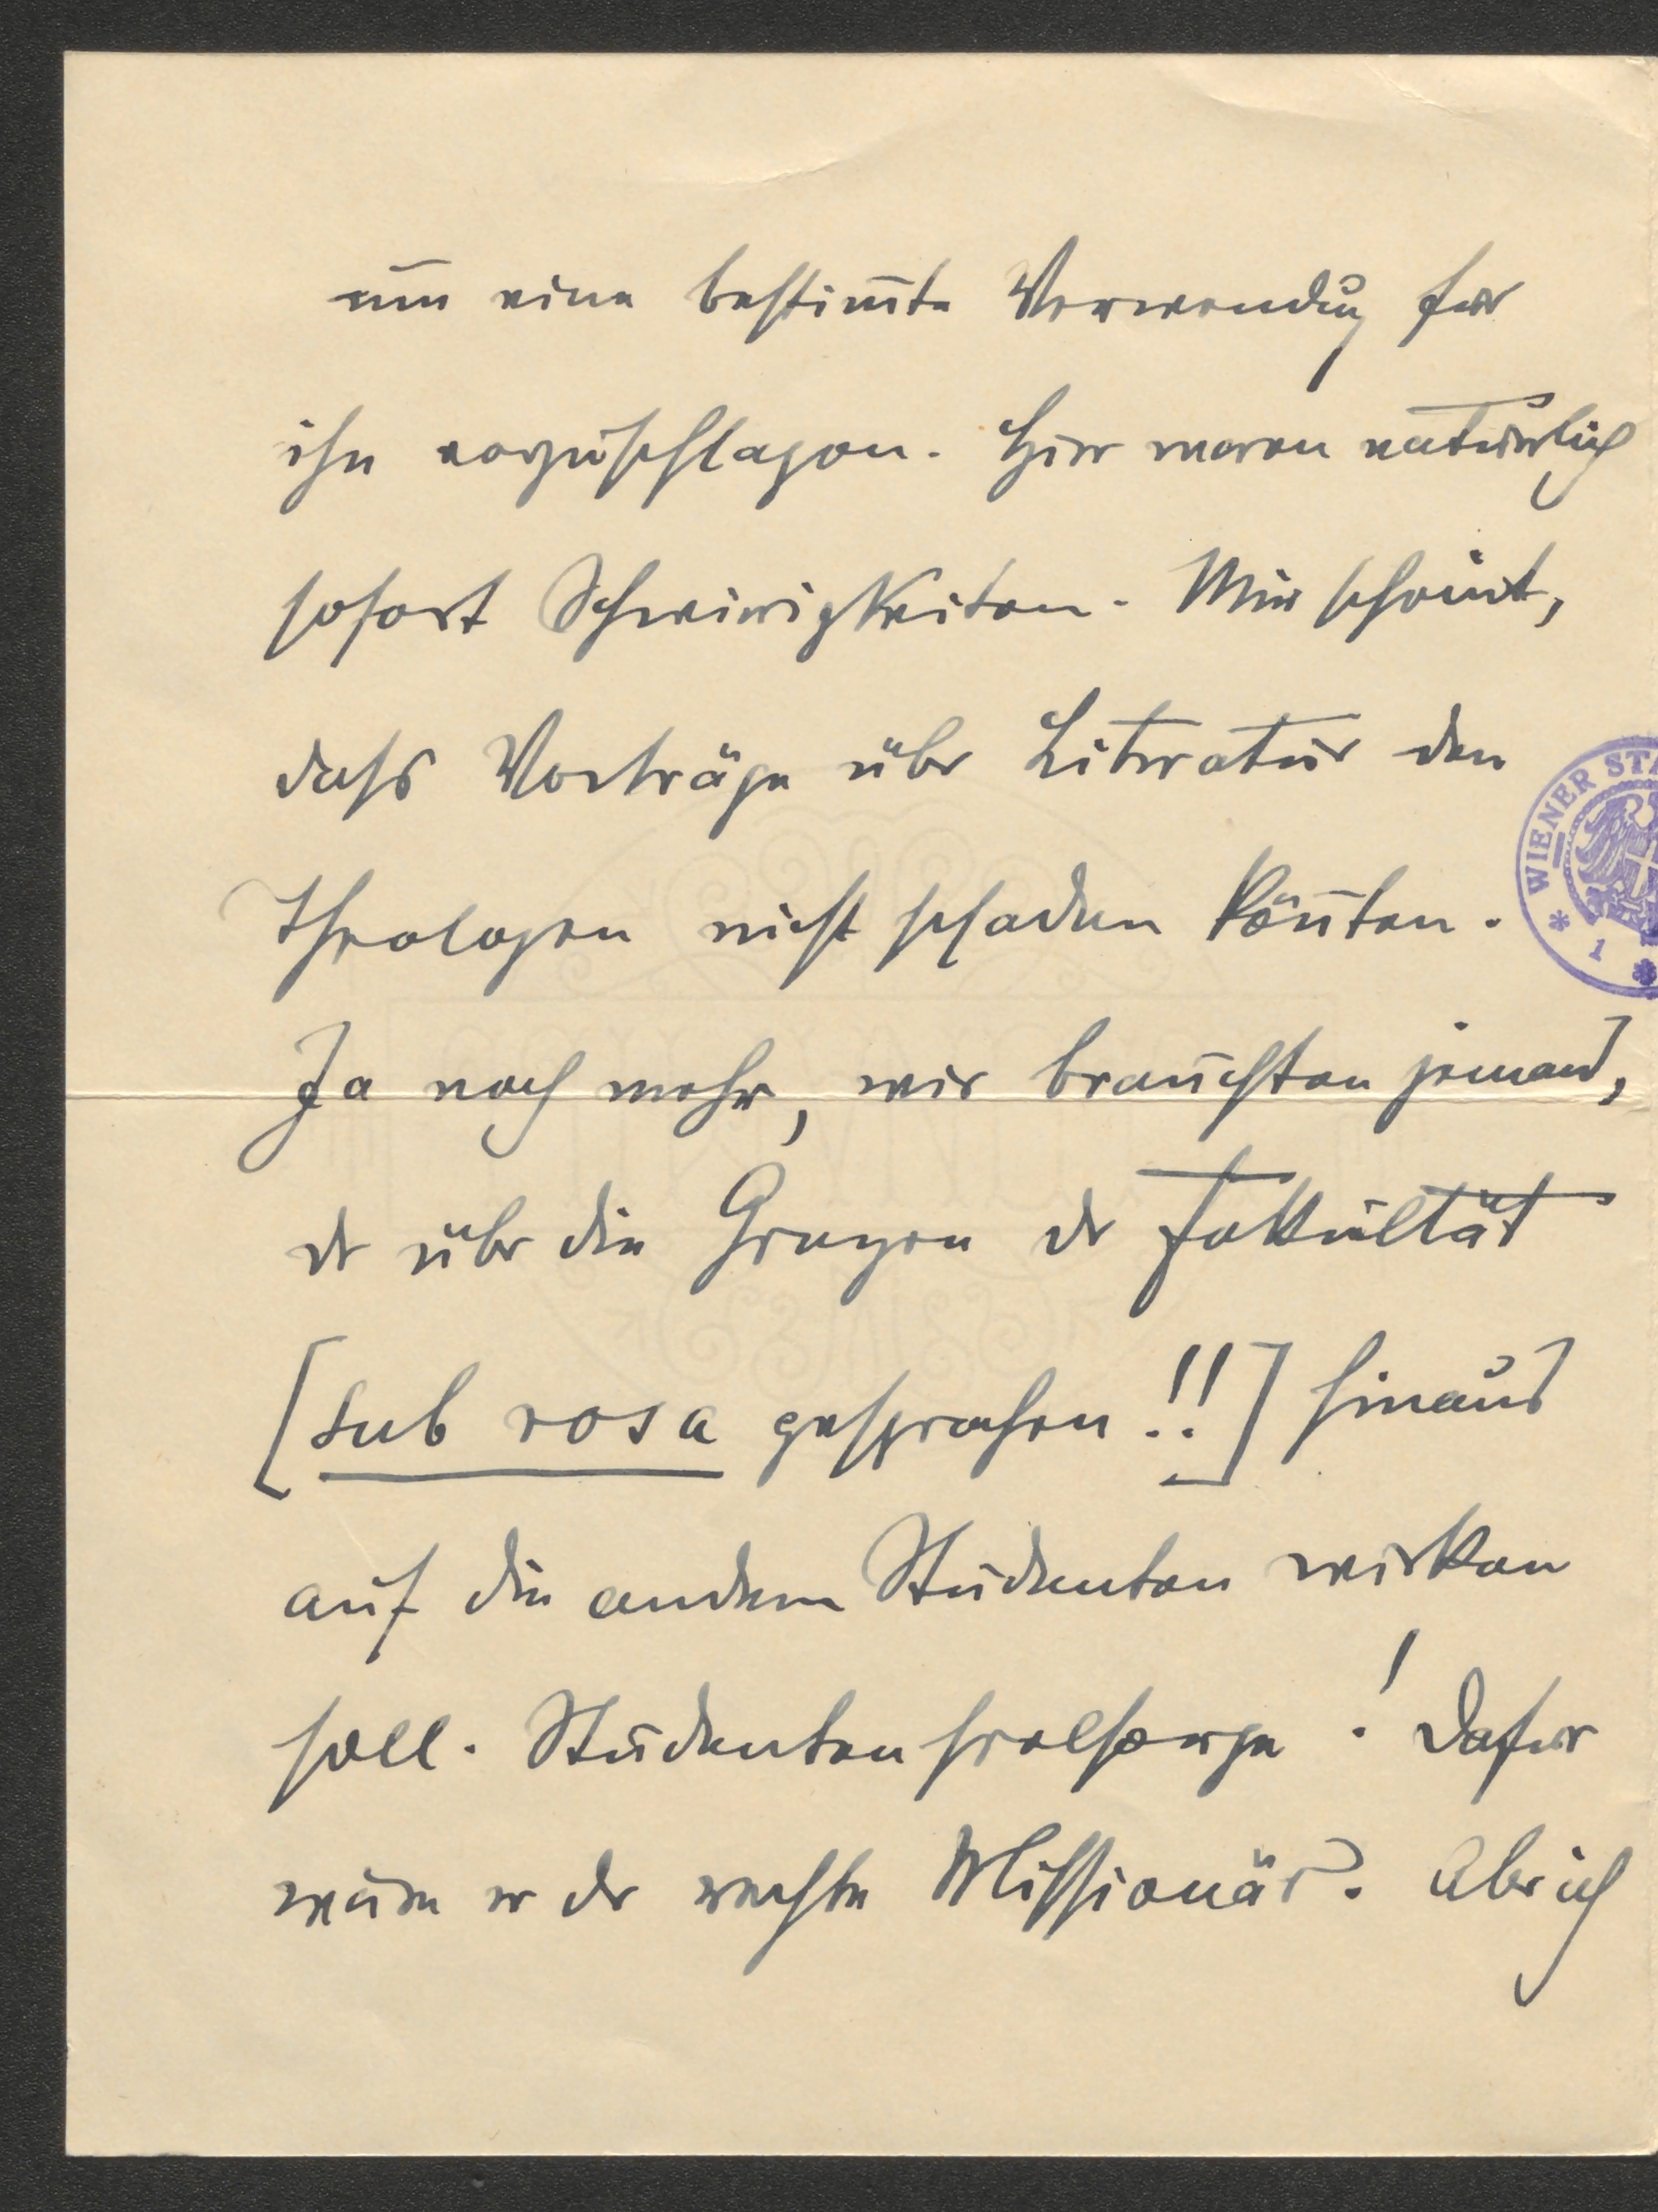 um eine bestim̅te Verwendung für
ihn vorzuschlagen. Hier waren natürlich
sofort Schwierigkeiten. Mir scheint,
dass Vorträge über Literatur den
Theologen nicht schaden kön̅ten.
Ja noch mehr, wir brauchten jemand,
der über die Grenzen der Fakultät
[sub rosa gesprochen!!] hinaus
auf die andern Studenten wirken
soll. Studentenseelsorge! Dafür
wäre er der rechte Missionär. Aber ich
WIENER ST
* 1 *